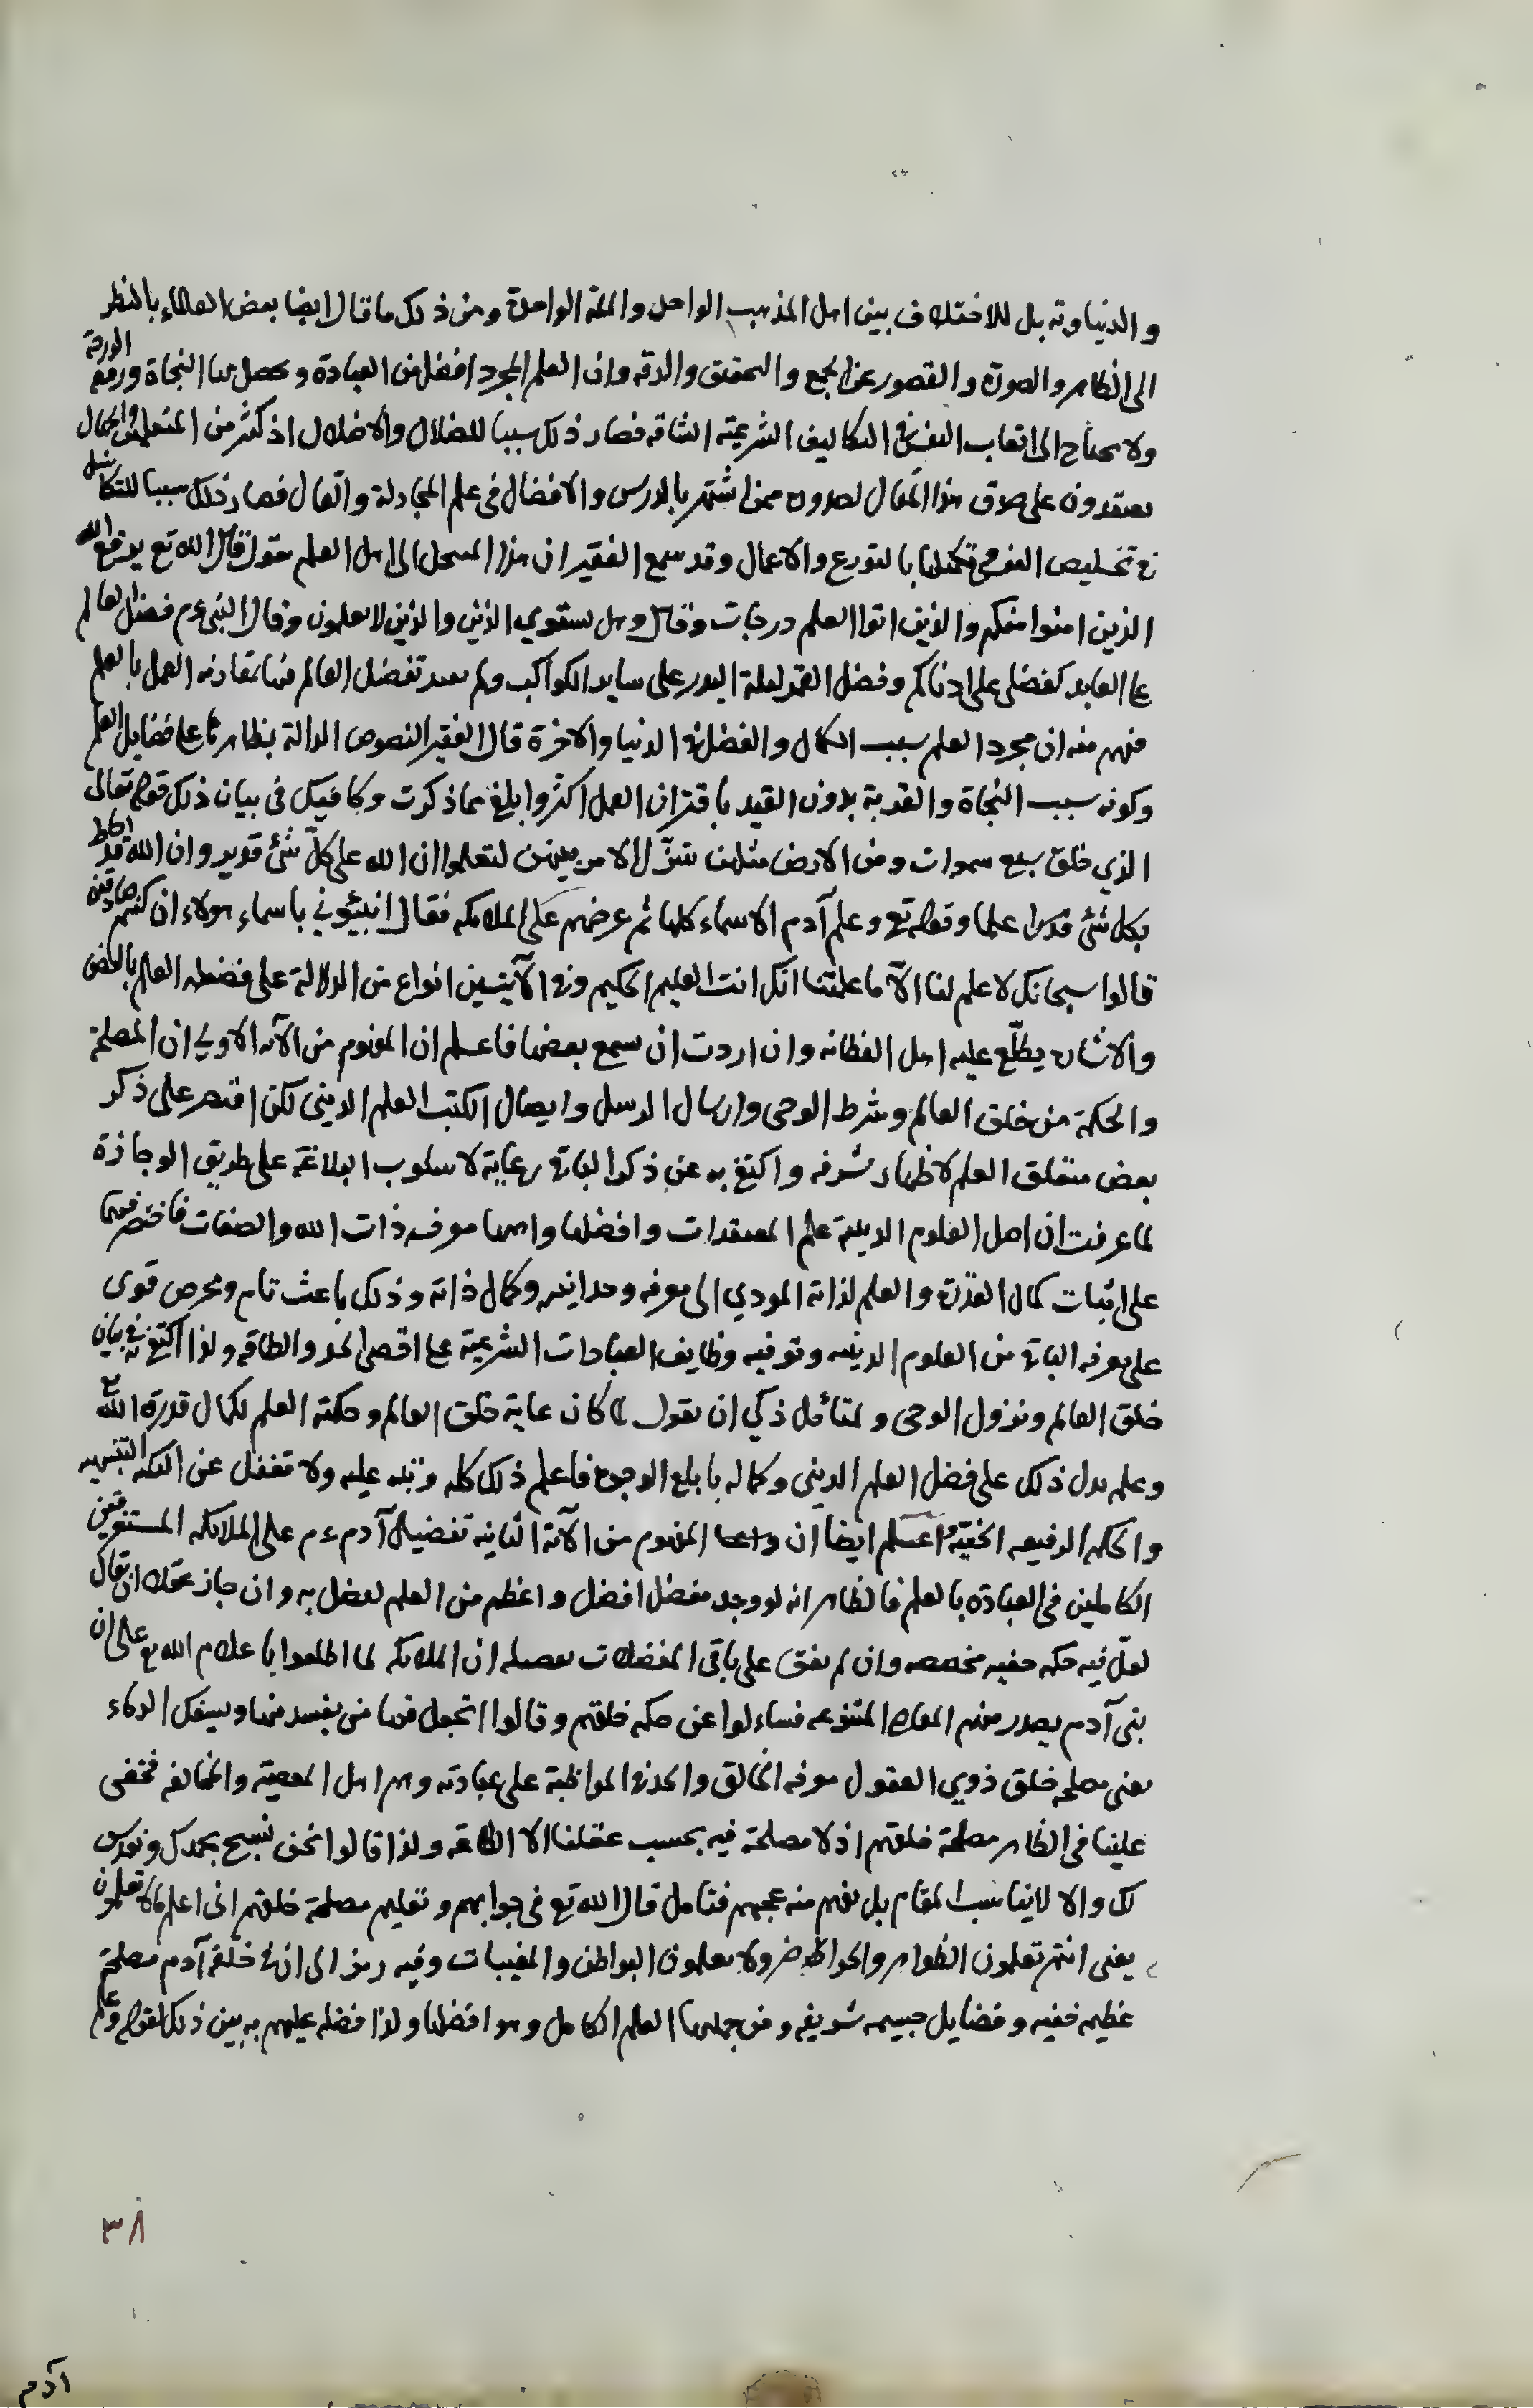 والدنياوته بل للاختلاف بين اهل المذهب الواحد والملة الواحدة ومن ذلك ما قال ايضا بعض العلماء بالنظر
الى الظاهر والصورة والقصور عن الجمع والتحقيق والدقه وان العلم المجرد افضل من العبادة ويحصل بها النجاة ورفع الدرجة
ولا يحتاج الى اتعاب النفس في التكاليف الشرعية الشاقه فصار ذلك سببا للضلال والاضلال اذ كثير من المتعلمين والجهال
يعتقدون على صدق هذا المقال لصدوره ممن اشتهر بالدرس والافضال في علم المجادلة والقال فصار ذلك سببا للتكاسل
في تخليص النفوس وتكميلها بالتورع والاعمال وقد سمع الفقير ان هذا المسجل الى اهل العلم يقول قال الله تع يرفع الله
الذين امنوا منكم والذين اتوا العلم درجات وقال وهل يستوي الذين والذين لا يعلمون وقال النبي عم فضل العالم
على العابد كفضلي على ادناكم وفضل القمر ليلة البدر على ساير الكواكب ولم يقيد تفضيل العالم فيها بمقارنه العمل بالعلم
فهم منه ان مجرد العلم سبب الكمال والفضل في الدنيا والاخرة قال الفقير النصوص الدالة بظاهرها على فضايل العلم
وكونه سبب النجاة والقربة بدون القيد باقتران العمل اكثر وابلغ مما ذكرت وكافيك في بيان ذلك قوله تعالى
الذي خلق سبع سموات ومن الارض مثلهن يتنزل الامر بينهن لتعلموا ان الله على كل شئ قدير وان الله قد احاط
بكل شئ علما وقوله تع وعلم آدم الاسماء كلها ثم عرضهم على الملائكه فقال انبئوني باسماء هولاء ان كنتم صادقين
قالوا سبحانك لا علم لنا الا ما علمتنا انك انت العليم الحكيم وفي الآيتين انواع من الدلالة على فضيله العلم بالنص
والاشاره يطلع عليه اهل الفطانه وان اردت ان تسمع بعضها فاعلم ان المفهوم من الآية الاولى ان المصلحة
والحكمة من خلق العالم وشرط الوحى وارسال الرسل وايصال الكتب العلم الديني لكن اقتصر على ذكر
بعض متعلق العلم لاظهار شرفه واكتفى به عن ذكر الباقي رعاية لاسلوب البلاغة على طريق الوجازة
لما عرفت ان اصل العلوم الدينية علم المعتقدات وافضلها واهمها معرفه ذات الله والصفات فاختصر فيهما
على اثبات كمال القدرة والعلم لذاته المودي الى معرفه وحدانيته وكمال ذاته وذلك باعث تام ومحرص قوى
على معرفه الباقي من العلوم الدينيه وتوفيه وظايف العبادات الشرعية على اقصى الحد والطاقه ولذا اكتفى به في بيان
خلق العالم ونزول الوحى ولمتأمل ذكي ان يقول لما كان غاية خلق العالم وحكمته العلم لكمال قدرة الله تع
وعلمه يدل ذلك على فضل العلم الديني وكماله بابلغ الوجوه فاعلم ذلك كله وتنبه عليه ولا تغفل عن النكته النفيسه
والحكمه الرفيعه الخفية واعلم ايضا ان المفهوم من الآية الثانيه تفضيل آدم عم على الملائكه المستغرقين
الكاملين في العبادة بالعلم فالظاهر انه لو وجد مفضل افضل واعظم من العلم لفضل به وان جاز عقلا ان يقال
لعل فيه حكمه خفيه مخصصه وان لم يفق على باقي المفضلات تفصيله ان الملائكه لما اطلعوا باعلام الله تع على ان
بني آدم يصدر منهم المفاسد المتنوعه فساءلوا عن حكمه خلقهم وقالوا اتجعل فيها من يفسد فيها ويسفك الدماء
يعني مصلحه خلق ذوي العقول معرفه الخالق والمواظبة على عبادته وهم اهل المعصية والمخالفه فخفى
علينا في الظاهر مصلحة خلقهم اذ لا مصلحة فيه بحسب عقلنا الا الطاعه ولذا قالوا نحن نسبح بحمدك ونقدس
لك والا لا يناسب المقام بل يفهم منه عجبهم فتامل قال الله تع في جوابهم وتعليم مصلحة خلقهم اني اعلم ما لا تعلمون
يعني انتم تعلمون الظواهر والحواضر ولا تعلمون البواطن والمغيبات وفيه رمز الى ان في خلقة آدم مصلحة
عظيمه خفيه وفضايل جسيمه شريفه ومن جملتها العلم الكامل وهو افضلها ولذا فضله عليهم به بين ذلك بقوله وعلم
٣٨
آدم